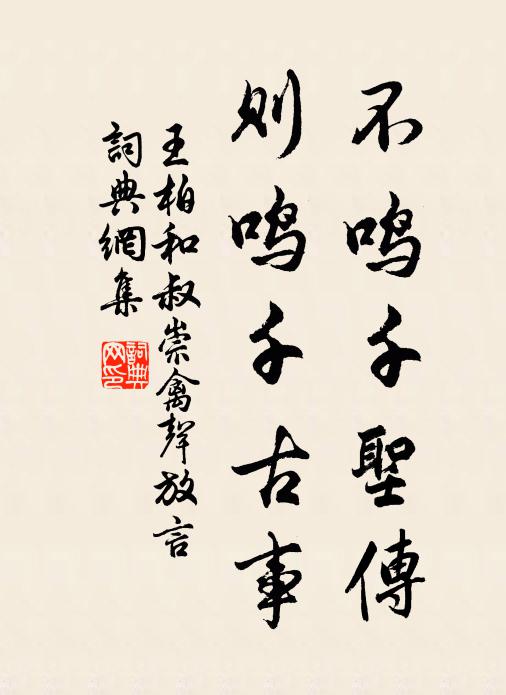 不鸣千聖傳
则鸣千古事
王柏和叔崇禽聲放言
詞典網集
詞典网印